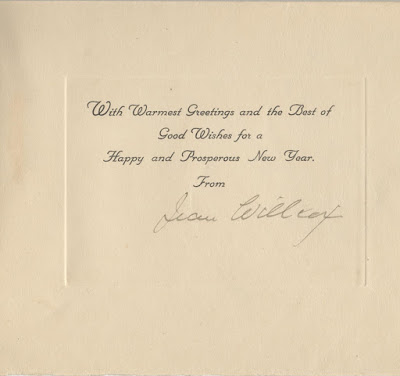 With Warmest Greetings and the Best of
Good Wishes for a
Happy and Prosperous New Year.
From
Jean Willcox